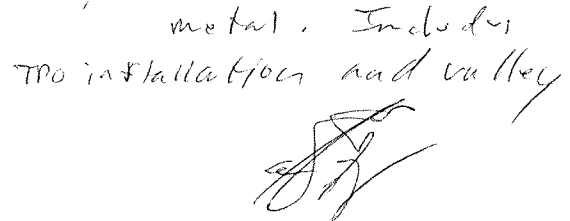 metal. Includes
TPO installation and valley